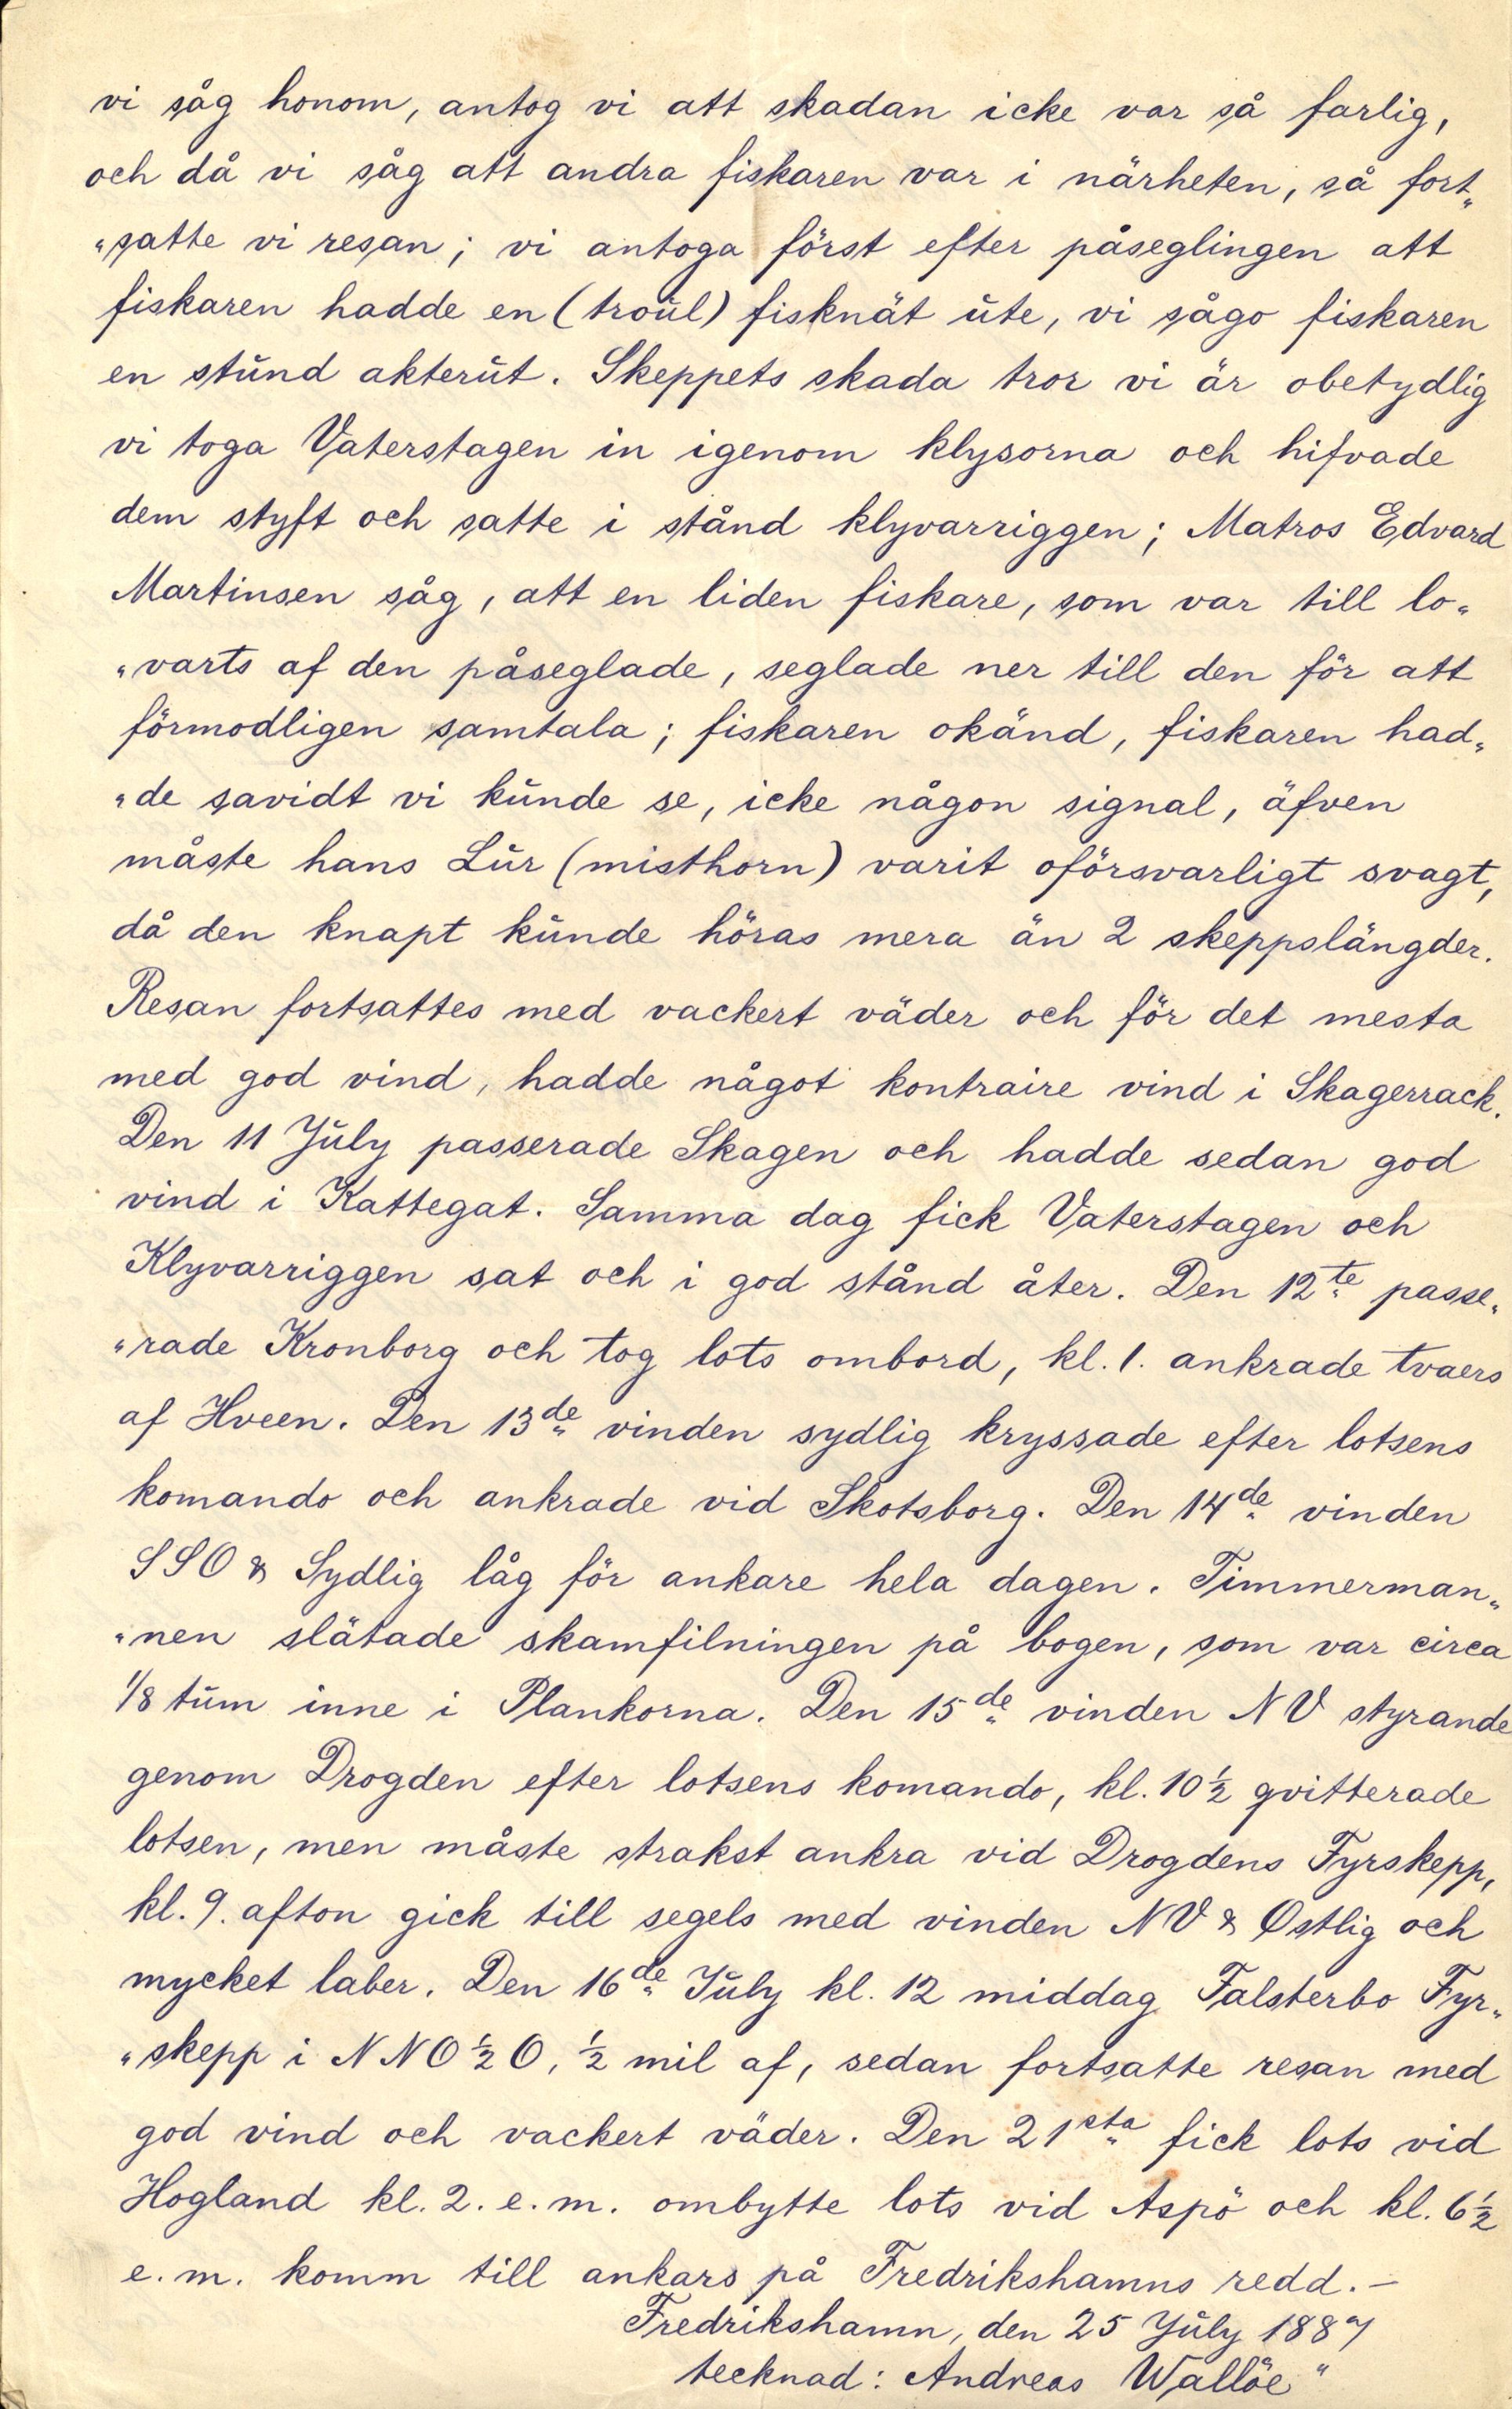 vi såg honom, antog vi att skadan icke var så farlig,
och då vi såg att andra fiskaren var i närheten, så fort„
„satte vi resan; vi antoga först efter påseglingen att
fiskaren hadde en (troŭl) fisknät ŭte, vi sågo fiskaren
en stŭnd akterŭt. Skeppets skada tror vi är obetydlig
vi toga Vaterstagen in igenom klysorna och hifvade
dem styft och satte i stånd klyvarriggen; Matros Edvard
Martinsen såg, att en liden fiskare, som var till lo„
„varts af den påseglade, seglade ner till den för att
förmodligen samtala; fiskaren okänd, fiskaren had„
„de savidt vi kŭnde se, icke någon signal, äfven
måste hans Lŭr (misthorn) varit oförsvarligt svagt,
då den knapt kŭnde höras mera än 2 skeppslängder.
Resan fortsattes med vackert väder och för det mesta
med god vind, hadde något kontraire vind i Skagerrack.
Den 11 Jŭly passerade Skagen och hadde sedan god
vind i Kattegat. Samma dag fick Vaterstagen och
Klyvarriggen sat och i god stånd åter. Den 12te passe„
„rade Kronborg och tog lots ombord, kl. 1. ankrade tvaers
af Hveen. Den 13de vinden sydlig kryssade efter lotsens
komando och ankrade vid Skotsborg. Den 14de vinden
SSO & Sydlig låg för ankare hela dagen. Timmerman„
„nen slätade skamfilningen på bogen, som var circa
1/8 tŭm inne i Plankorna. Den 15de vinden NV styrande
genom Drogden efter lotsens komando, kl. 10½ qvitterade
lotsen, men måste strakst ankra vid Drogdens Fyrskepp,
kl. 9. afton gick till segels med vinden NV & Ostlig och
mycket laber. Den 16de Jŭly kl. 12 middag Falsterbo Fyr„
„skepp i NNO½O, ½ mil af, sedan fortsatte resan med
god vind och vackert väder. Den 21sta fick lots vid
Hogland kl. 2. e.m. ombytte lots vid Aspö och kl. 6½
e.m. komm till ankars på Fredrikshamns redd.—
Fredrikshamn, den 25 Jŭly 1887
tecknad: Andreas Wallöe"